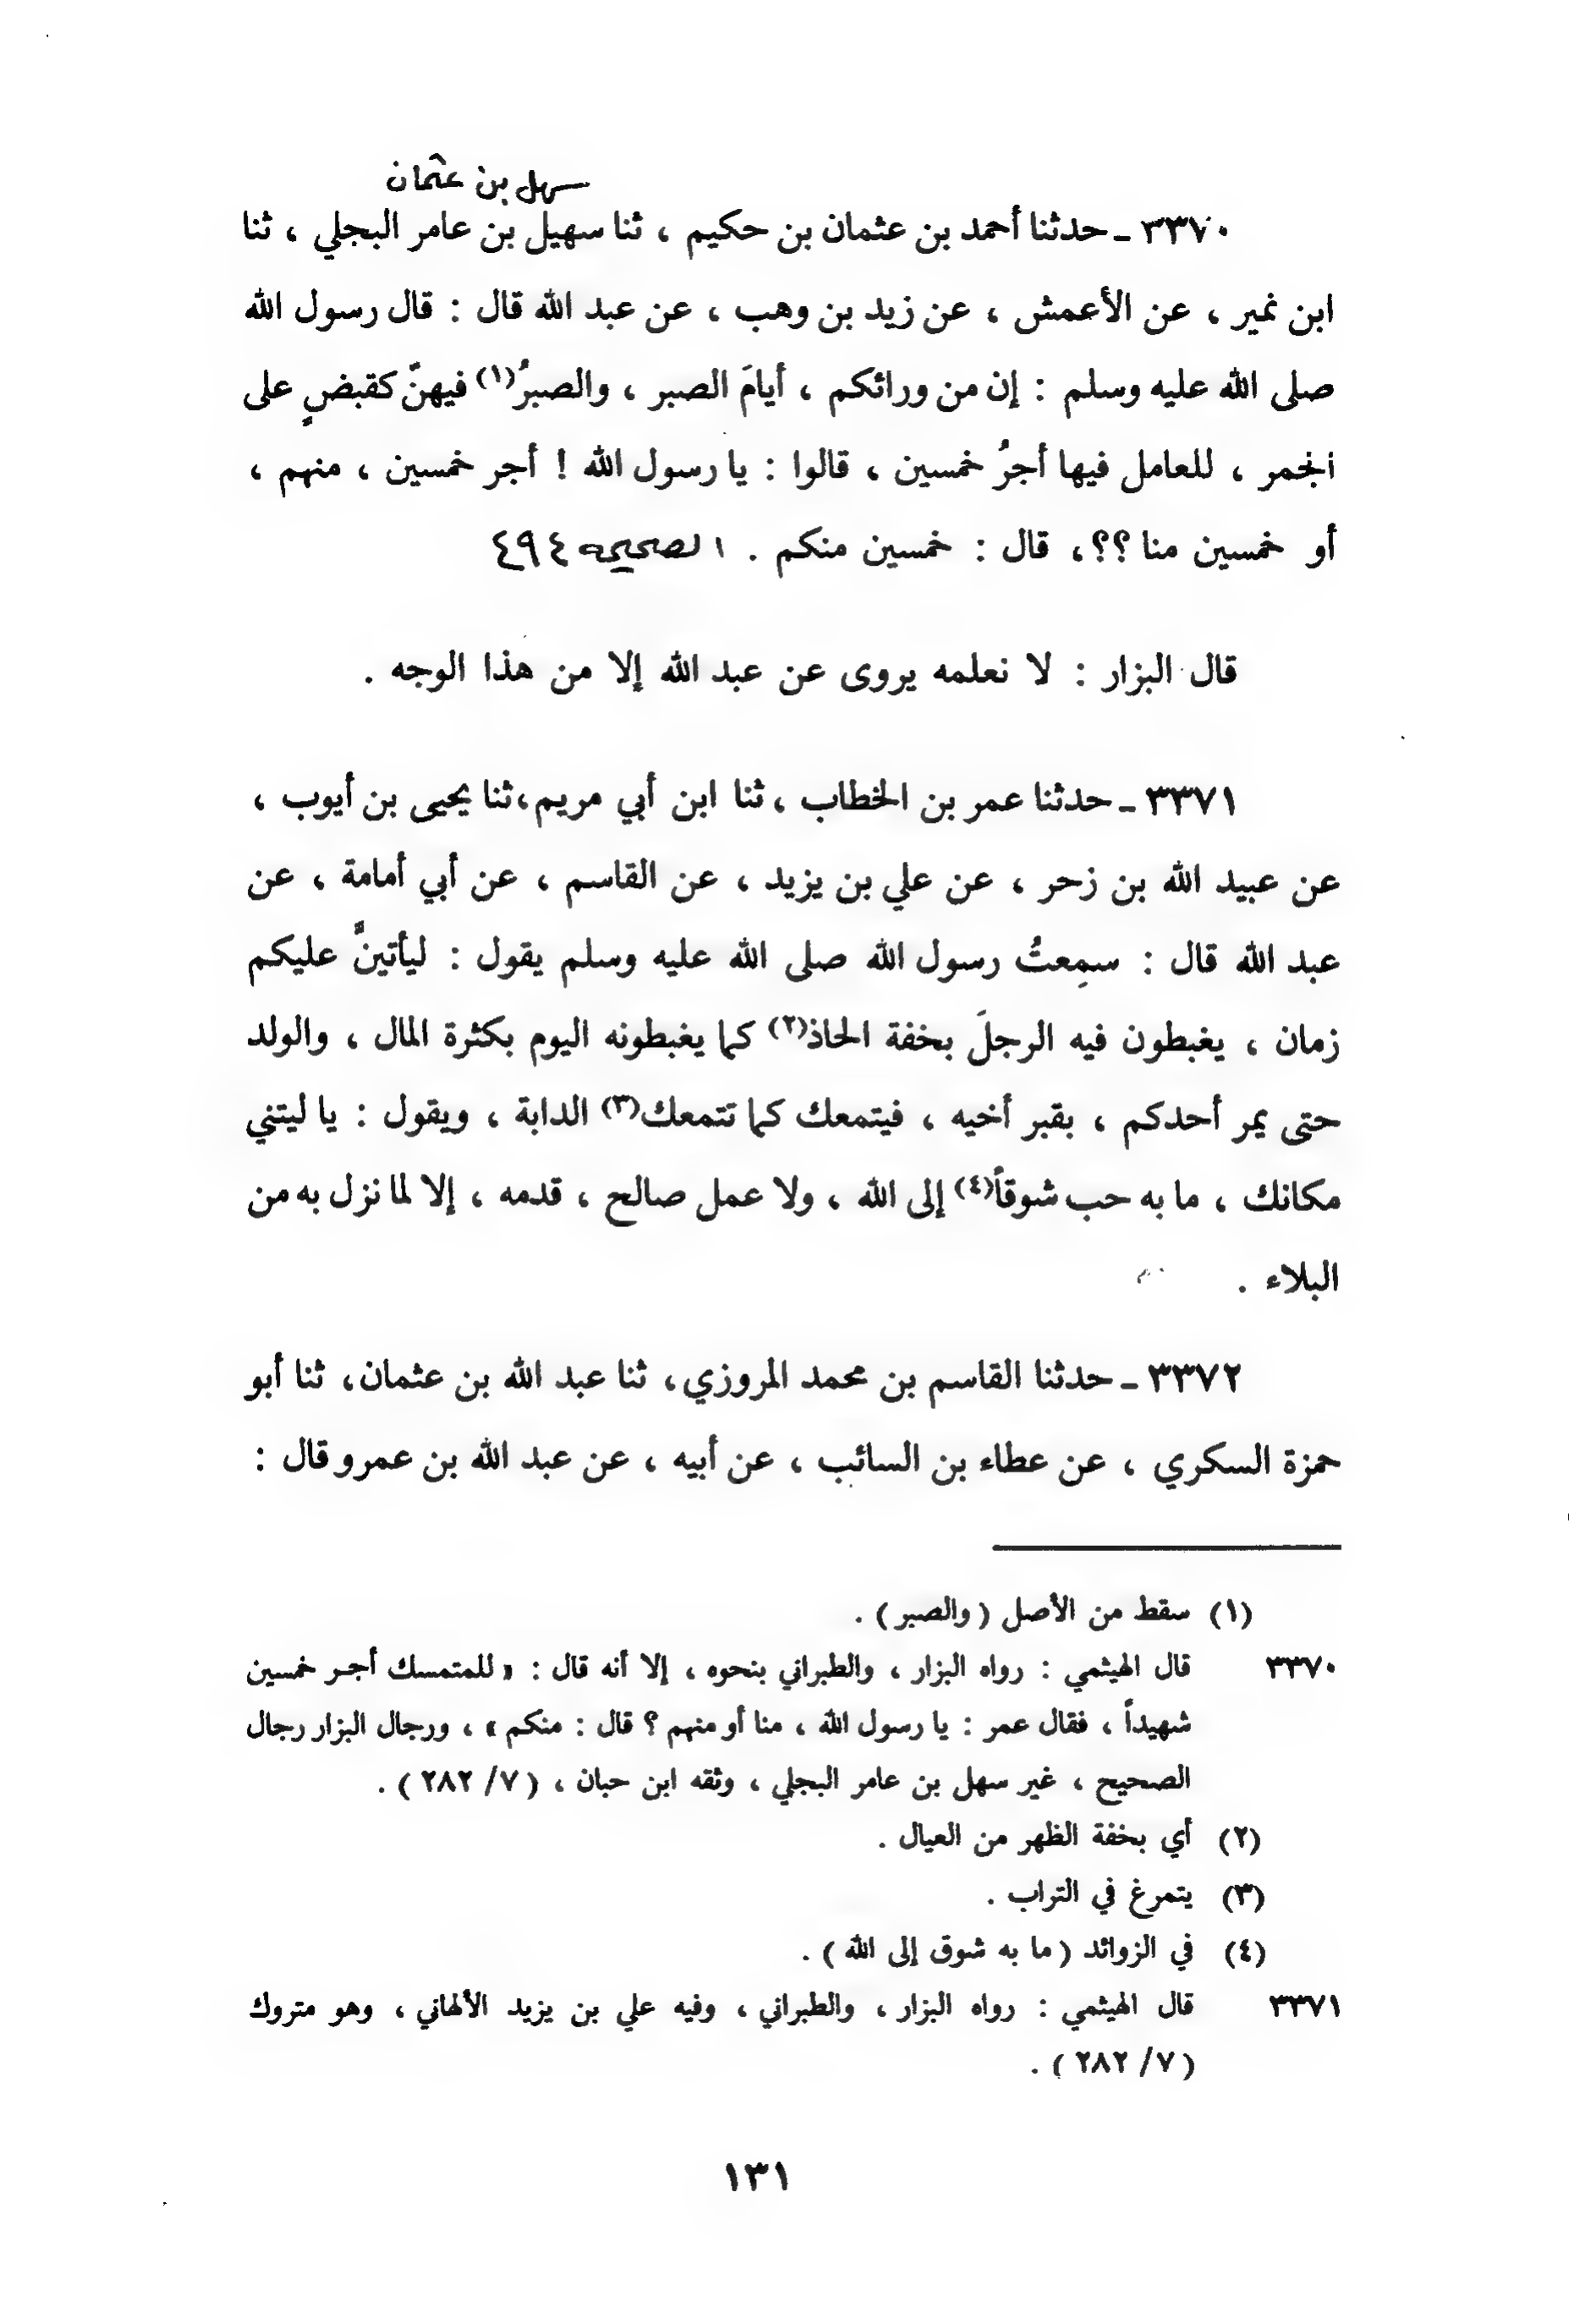 سهل بن عثمان
٣٣٧٠ ـ حدثنا أحمد بن عثمان بن حكيم ، ثنا سهيل بن عامر البجلي ، ثنا
ابن نمير ، عن الأعمش ، عن زيد بن وهب ، عن عبد الله قال : قال رسول الله
صلى الله عليه وسلم : إن من ورائكم ، أيامَ الصبر ، والصبرُ(١) فيهنّ كقبضٍ على
الجمر ، للعامل فيها أجرُ خمسين ، قالوا : يا رسول الله ! أجر خمسين ، منهم ،
أو خمسين منا ؟؟، قال : خمسين منكم . الصحيحه ٤٩٤
قال البزار : لا نعلمه يروى عن عبد الله إلا من هذا الوجه .
٣٣٧١ ـ حدثنا عمر بن الخطاب ، ثنا ابن أبي مريم، ثنا يحيى بن أيوب ،
عن عبيد الله بن زحر ، عن علي بن يزيد ، عن القاسم ، عن أبي أمامة ، عن
عبد الله قال : سمِعتُ رسول الله صلى الله عليه وسلم يقول : ليأتينَّ عليكم
زمان ، يغبطون فيه الرجلَ بخفة الحاذ(٢) كما يغبطونه اليوم بكثرة المال ، والولد
حتى يمر أحدكم ، بقبر أخيه ، فيتمعك كما تتمعك(٣) الدابة ، ويقول : يا ليتني
مكانك ، ما به حب شوقاً(٤) إلى الله ، ولا عمل صالح ، قدمه ، إلا لما نزل به من
البلاء .
٣٣٧٢ ـ حدثنا القاسم بن محمد المروزي، ثنا عبد الله بن عثمان، ثنا أبو
حمزة السكري ، عن عطاء بن السائب ، عن أبيه ، عن عبد الله بن عمرو قال :
(١) سقط من الأصل ( والصبر ) .
٣٣٧٠ قال الهيثمي : رواه البزار ، والطبراني بنحوه ، إلا أنه قال : « للمتمسك أجر خمسين
شهيداً ، فقال عمر : يا رسول الله ، منا أو منهم ؟ قال : منكم » ، ورجال البزار رجال
الصحيح ، غير سهل بن عامر البجلي ، وثقه ابن حبان ، ( ٧/ ٢٨٢ ) .
(٢) أي بخفة الظهر من العيال .
(٣) يتمرغ في التراب .
(٤) في الزوائد ( ما به شوق إلى الله ) .
٣٣٧١ قال الهيثمي : رواه البزار ، والطبراني ، وفيه علي بن يزيد الألهاني ، وهو متروك
( ٧/ ٢٨٢ ) .
١٣١